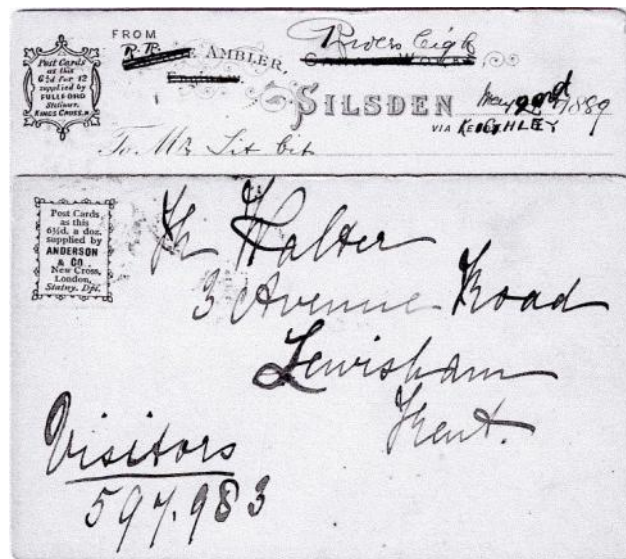 Post Cards
as this
6½d for 12
supplied by
FULLFORD
Stationer.
KINGS CROSS.N
FROM
AMBLER,
Rivers Leigh
SILSDEN
May 22nd 1889
VIA KEIGHLEY
To Mr
Post Cards
as this
6½d. a doz.
supplied by
ANDERSON
& CO
New Cross,
London,
Statny. Dpt.
Walter
3 Avenue Road
Lewisham
Kent.
Visitors
597.983